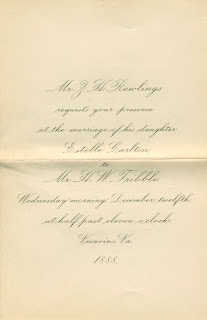 Mr. Z. H. Rawlings
requests your presence
at the marriage of his daughter
Estelle Carlton,
to
Mr. H. W. Tribble
Wednesday morning, December, twelfth
at half past eleven o'clock
Vesuvius, Va.
1888.